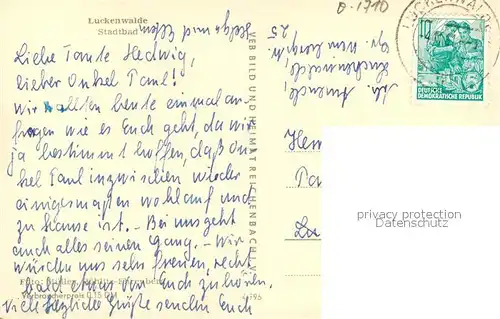 Luckenwalde
Stadtbad
Liebe Tante Hedwig,
lieber Onkel Paul!
Wir wollten heute einmal an-
fragen wie es Euch geht, da wir
ja bestimmt hoffen, daß On-
kel Paul inzwischen wieder
einigermaßen wohlauf und
zu Hause ist. – Bei uns geht
auch alles seinen Gang. – Wir
würden uns sehr freuen, recht
bald etwas von Euch zu hören.
Viele herzliche Grüße senden Euch
und
Verbraucherpreis 0,15 DM
VEB BILD UND HEIMAT REICHENBACH I. V.
Luckenwalde,
25
0-1710
LUCKENWALDE
10
5
DEUTSCHE
DEMOKRATISCHE REPUBLIK
privacy protection
Datenschutz